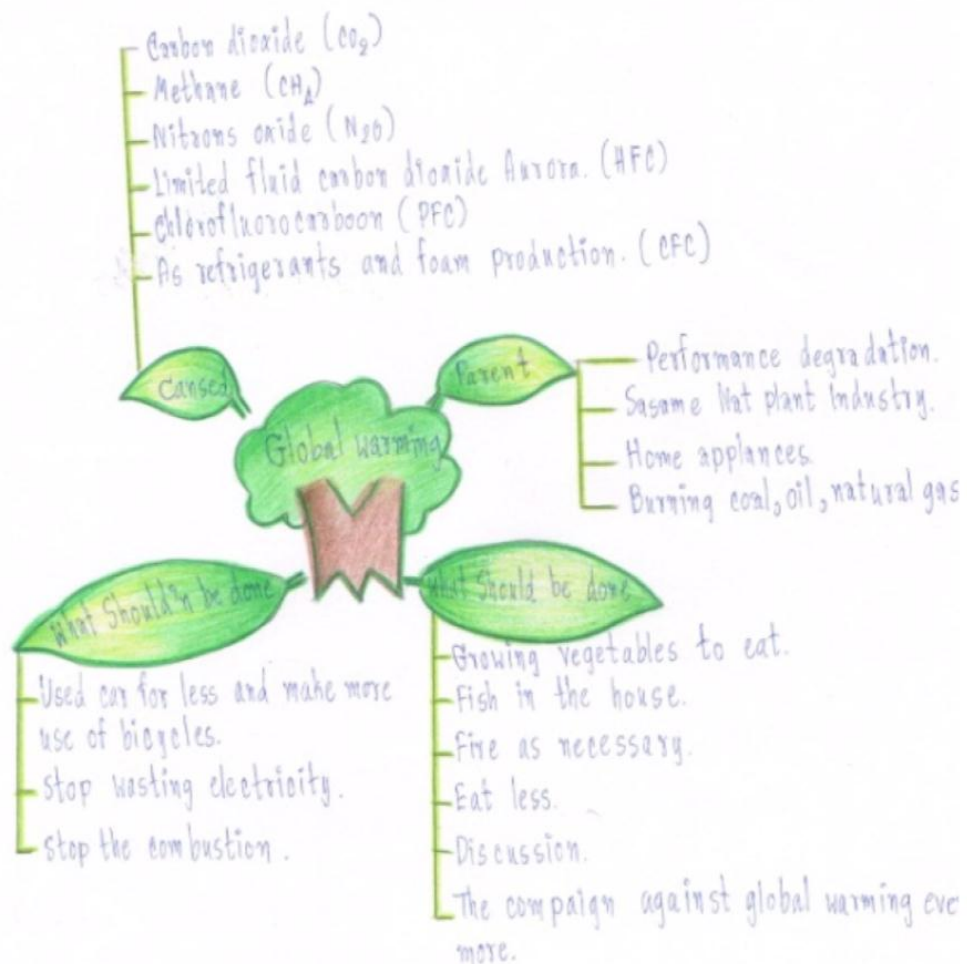 Carbon dioxide (CO₂)
Methane (CH₄)
Nitrons oxide (N₂O)
Limited fluid carbon dioxide Aurora. (HFC)
Chlorofluorocarboon (PFC)
As refrigerants and foam production. (CFC)
Caused
Parent
Performance degradation.
Sasame Nat plant Industry.
Home applances.
Burning coal, oil, natural gas
Global warming
What Should'n be done
What Should be done
Used car for less and make more
use of bicycles.
Stop wasting electricity.
Stop the combustion.
Growing vegetables to eat.
Fish in the house.
Fire as necessary.
Eat less.
Discussion.
The compaign against global warming eve
more.